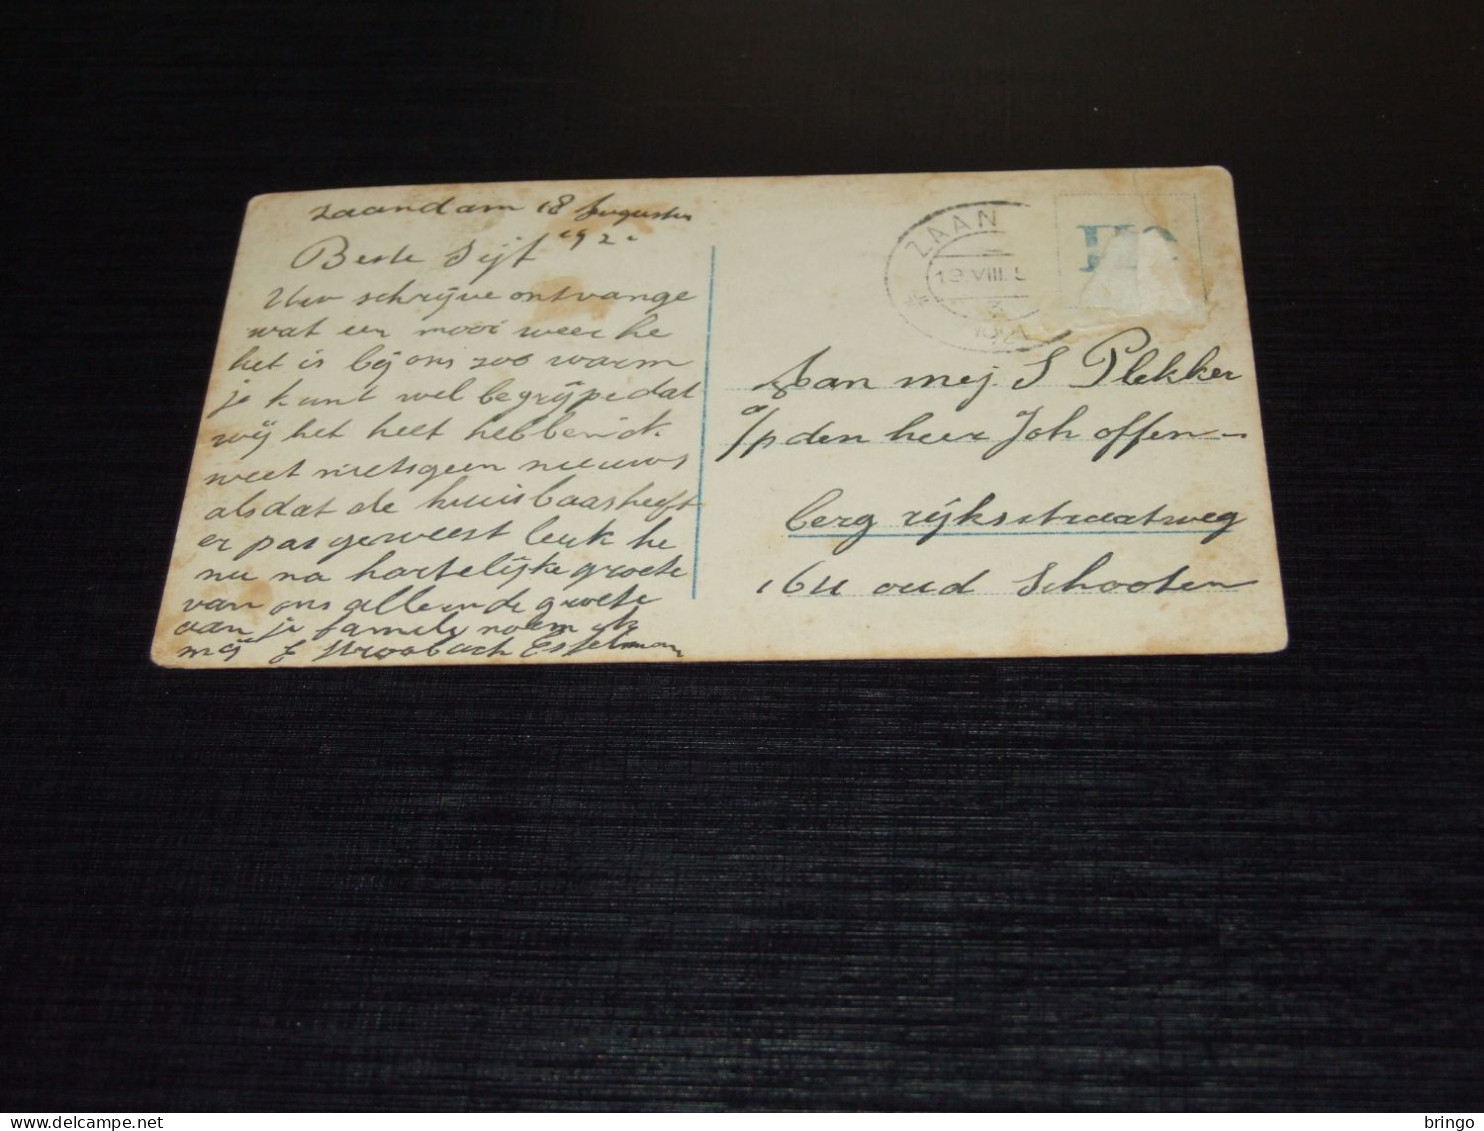 zaandam 18 Augustus
192
Beste Sijt
Uw schrijve ontvange
wat een mooi weer he
het is bij ons zoo warm
je kunt wel begrijpe dat
wij het heet hebben ik
weet niets geen nieuws
alsdat de huisbaas heeft
er pas geweest leuk he
nu na hartelijke groete
van ons alle en de groete
van je famele noem
mij E Stroobach Esselman
ZAAN
Aan mej. S Plekker
a/p den heer Joh offen-
berg rijksstraatweg
164 oud Schooten
bringo
www.delcampe.net